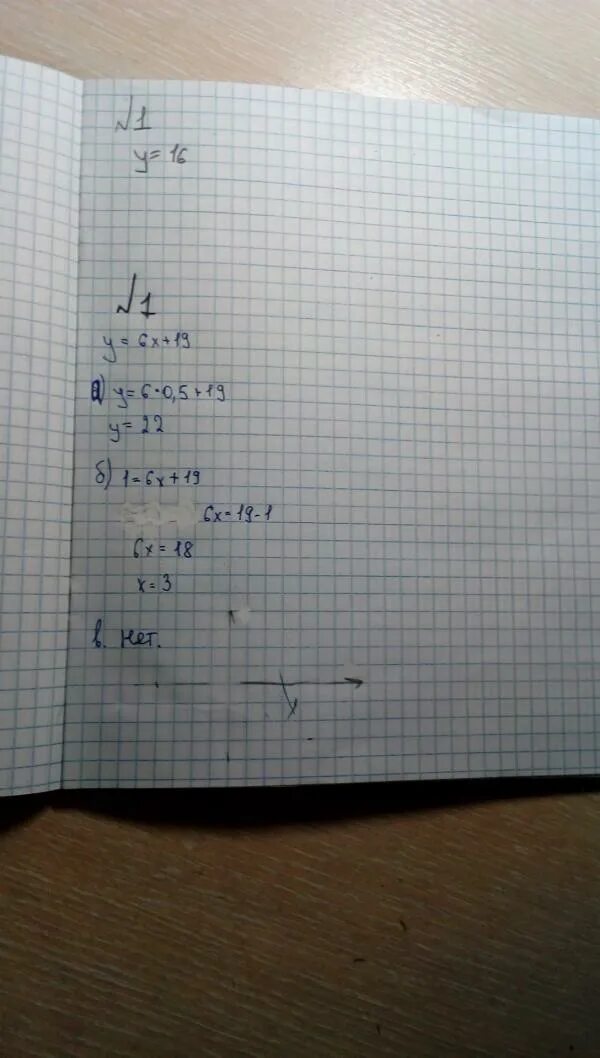 №1
y = 16
№1
y = 6x+19
а) y = 6·0,5+19
y = 22
б) 1 = 6x + 19
6x = 19-1
6x = 18
x = 3
в. Нет.